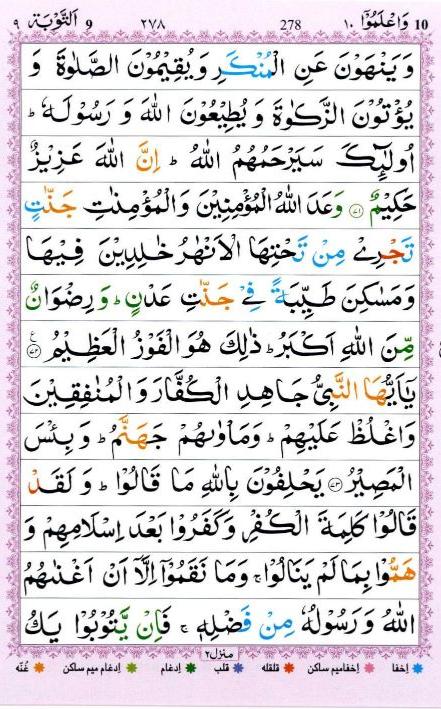 10 وَاعْلَمُوْۤا ١٠ 278 ٢٧٨ اَلتَّوْبَة 9 ٩
وَ يَنْهَوْنَ عَنِ الْمُنْكَرِ وَ يُقِيْمُوْنَ الصَّلٰوةَ وَ
يُؤْتُوْنَ الزَّكٰوةَ وَ يُطِيْعُوْنَ اللّٰهَ وَ رَسُوْلَهٗ ؕ
اُولٰٓىِٕكَ سَيَرْحَمُهُمُ اللّٰهُ ؕ اِنَّ اللّٰهَ عَزِيْزٌ
حَكِيْمٌ ﴿۷۱﴾ وَعَدَ اللّٰهُ الْمُؤْمِنِيْنَ وَالْمُؤْمِنٰتِ جَنّٰتٍ
تَجْرِيْ مِنْ تَحْتِهَا الْاَنْهٰرُ خٰلِدِيْنَ فِيْهَا
وَمَسٰكِنَ طَيِّبَةً فِيْ جَنّٰتِ عَدْنٍ ؕ وَ رِضْوَانٌ
مِّنَ اللّٰهِ اَكْبَرُ ؕ ذٰلِكَ هُوَ الْفَوْزُ الْعَظِيْمُ ﴿۷۲﴾ ع
يٰۤاَيُّهَا النَّبِيُّ جَاهِدِ الْكُفَّارَ وَ الْمُنٰفِقِيْنَ
وَاغْلُظْ عَلَيْهِمْ ؕ وَمَاْوٰىهُمْ جَهَنَّمُ ؕ وَ بِئْسَ
الْمَصِيْرُ ﴿۷۳﴾ يَحْلِفُوْنَ بِاللّٰهِ مَا قَالُوْا ؕ وَ لَقَدْ
قَالُوْا كَلِمَةَ الْكُفْرِ وَ كَفَرُوْا بَعْدَ اِسْلَامِهِمْ وَ
هَمُّوْا بِمَا لَمْ يَنَالُوْا ۚ وَمَا نَقَمُوْۤا اِلَّاۤ اَنْ اَغْنٰىهُمُ
اللّٰهُ وَ رَسُوْلُهٗ مِنْ فَضْلِهٖ ۚ فَاِنْ يَّتُوْبُوْا يَكُ
منزل٢
اخفا اخفامیم ساکن قلقله قلب ادغام ادغام میم ساکن غُنّه